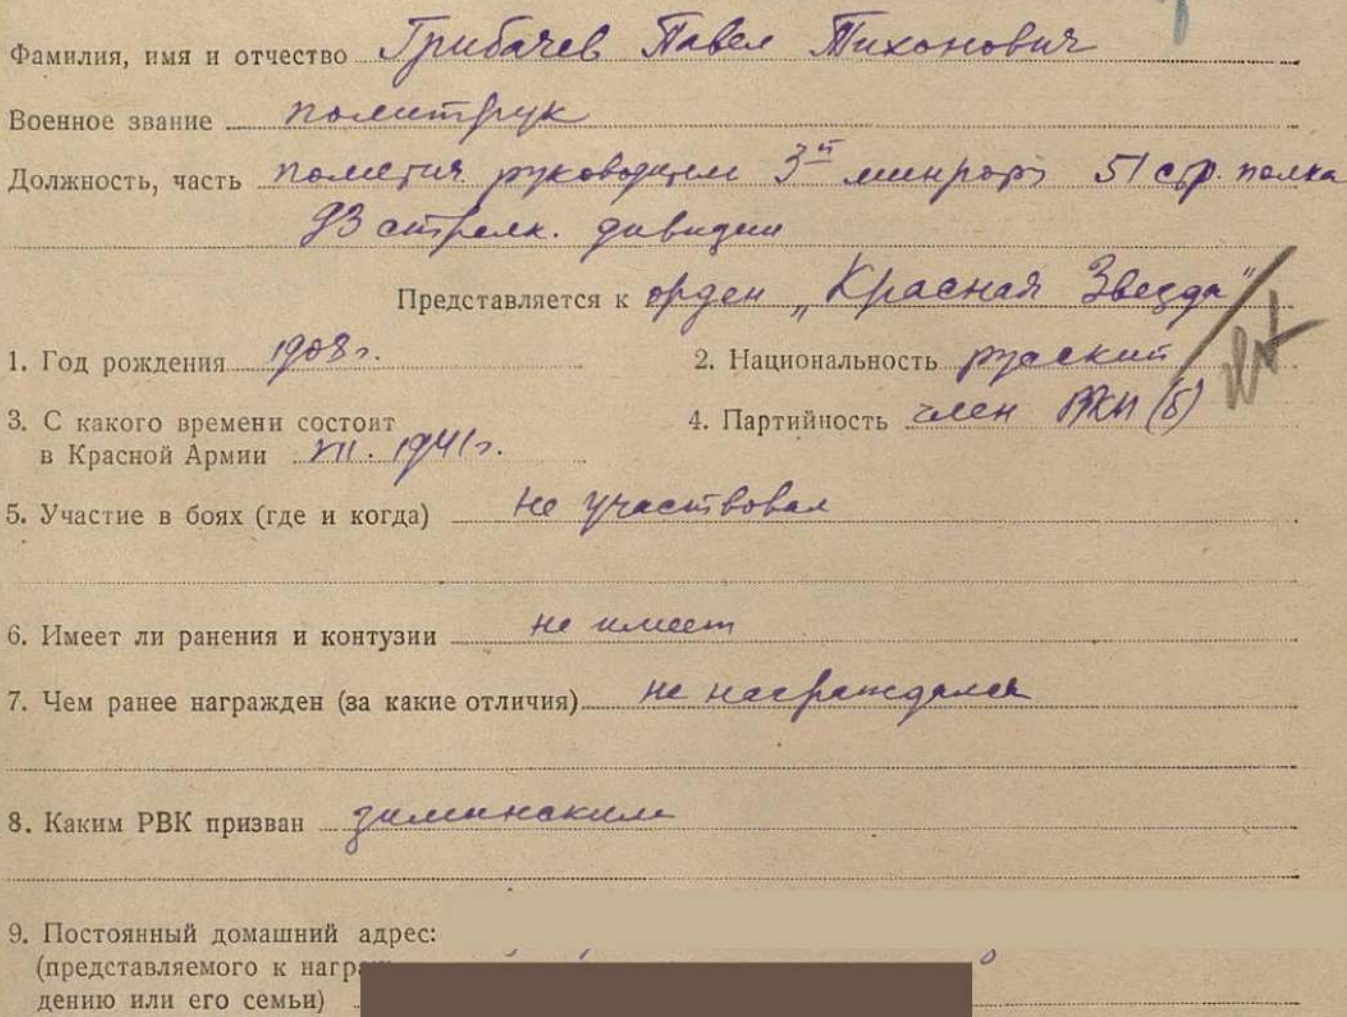 Фамилия, имя и отчество Грибачев Павел Тихонович
Военное звание политрук
Должность, часть политич. руководитель 3й минроты 51 стр. полка
93 стрелк. дивизии
Представляется к орден „Красная Звезда"
1. Год рождения 1908 г. 2. Национальность русский
3. С какого времени состоит 4. Партийность член ВКП(б)
в Красной Армии VII. 1941 г.
5. Участие в боях (где и когда) не участвовал
6. Имеет ли ранения и контузии не имеет
7. Чем ранее награжден (за какие отличия) не награждался
8. Каким РВК призван зиминским
9. Постоянный домашний адрес:
(представляемого к награ
дению или его семьи)